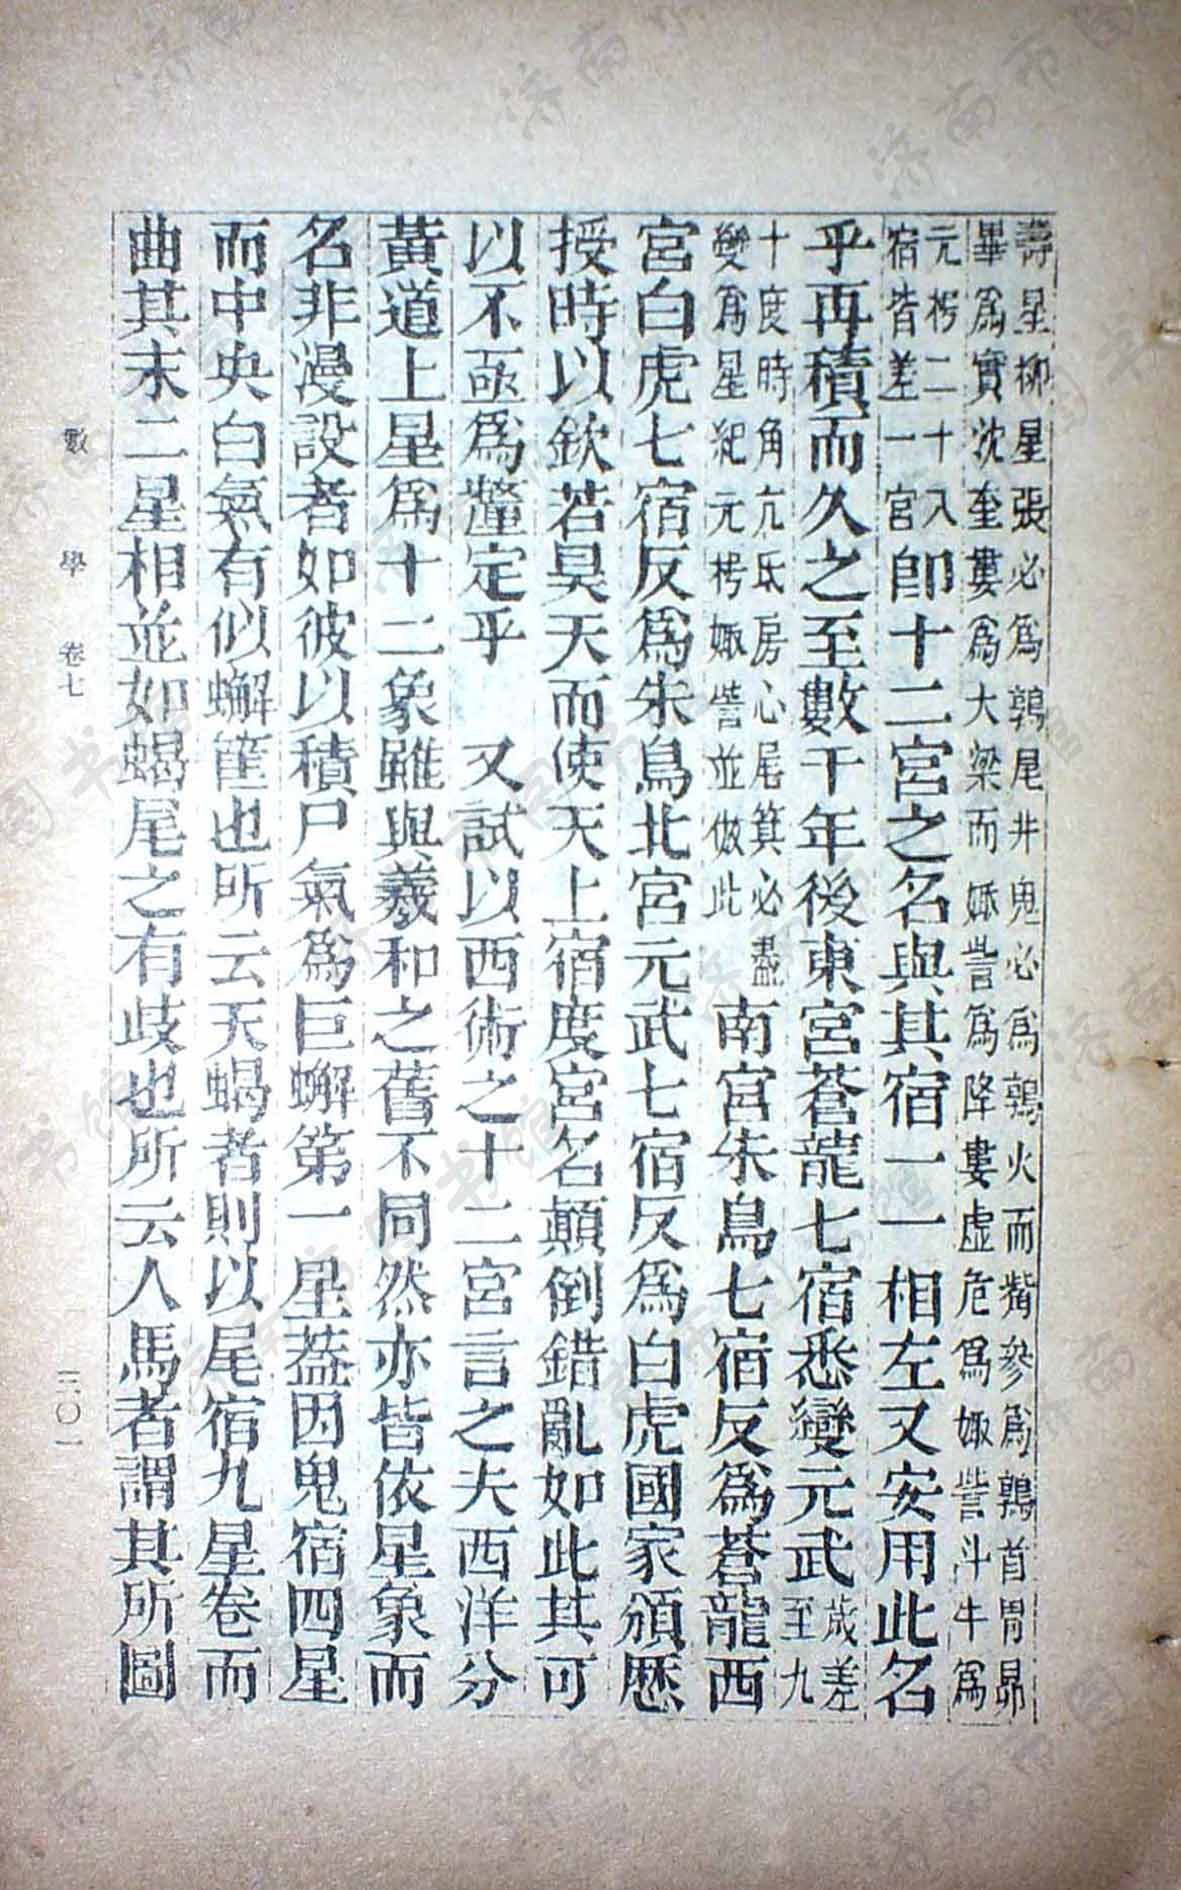 壽星柳星張必爲鶉尾井鬼必爲鶉火而觜參爲鶉首胃昴
畢爲實沈奎婁爲大梁而娵訾爲降婁虛危爲娵訾斗牛爲
元枵二十八
宿皆差一宮
卽十二宮之名與其宿一一相左又安用此名
乎再積而久之至數千年後東宮蒼龍七宿悉變元武
歲差
至九
十度時角亢氐房心尾箕必盡
變爲星紀元枵娵訾並倣此
南宮朱鳥七宿反爲蒼龍西
宮白虎七宿反爲朱鳥北宮元武七宿反爲白虎國家頒歷
授時以欽若昊天而使天上宿度宮名顛倒錯亂如此其可
以不亟爲釐定乎 又試以西術之十二宮言之夫西洋分
黃道上星爲十二象雖與羲和之舊不同然亦皆依星象而
名非漫設者如彼以積尸氣爲巨蠏第一星葢因鬼宿四星
而中央白氣有似蠏筐也所云天蝎者則以尾宿九星卷而
曲其末二星相並如蝎尾之有歧也所云人馬者謂其所圖
數學 卷七 三〇一
济南市图书馆